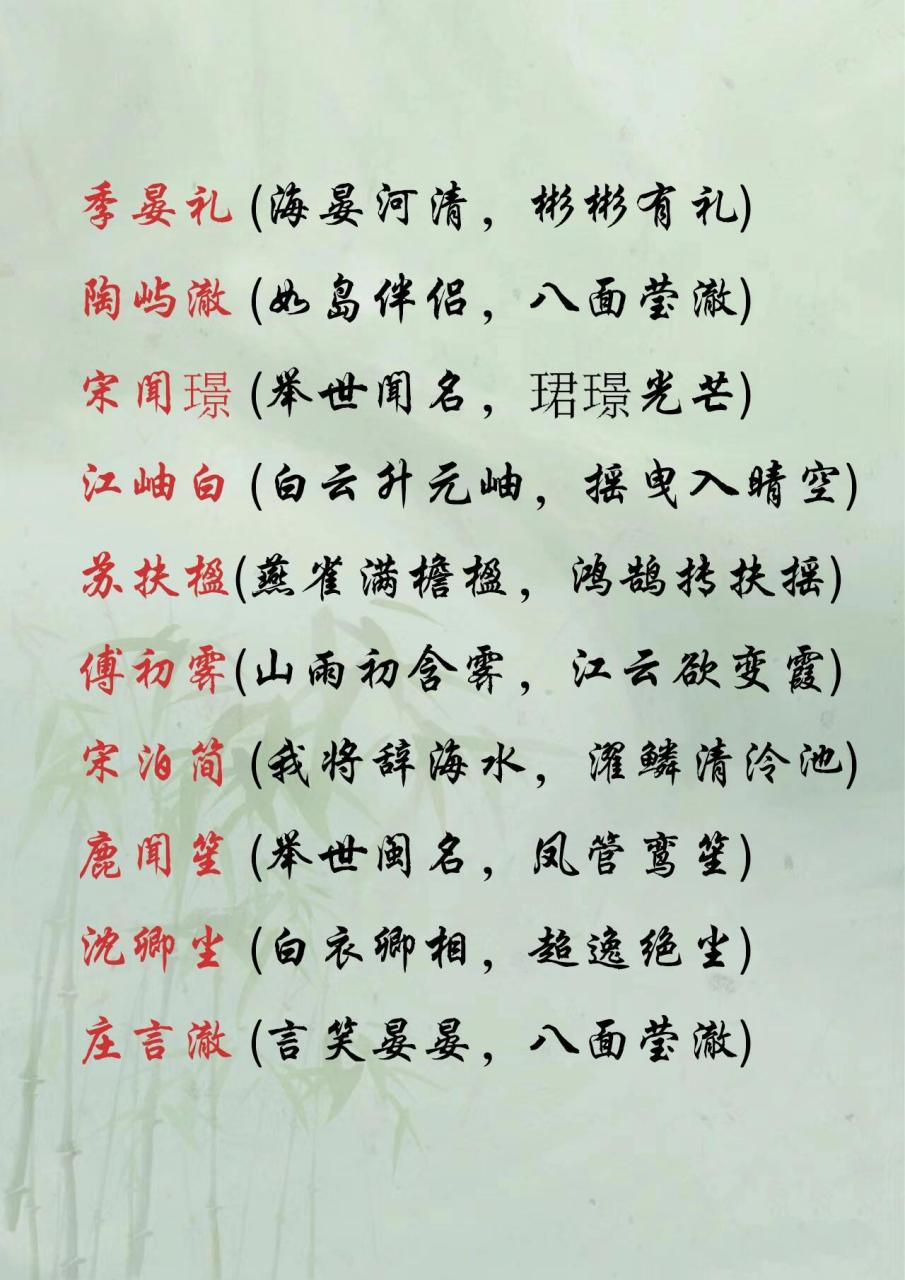 季晏礼 (海晏河清，彬彬有礼)
陶屿澈 (如岛伴侣，八面莹澈)
宋闻璟 (举世闻名，珺璟光芒)
江岫白 (白云升元岫，摇曳入晴空)
苏扶楹(燕雀满檐楹，鸿鹄抟扶摇)
傅初霁(山雨初含霁，江云欲变霞)
宋泊简 (我将辞海水，濯鳞清泠池)
鹿闻笙 (举世闽名，凤管鸾笙)
沈卿尘 (白衣卿相，超逸绝尘)
庄言澈 (言笑晏晏，八面莹澈)